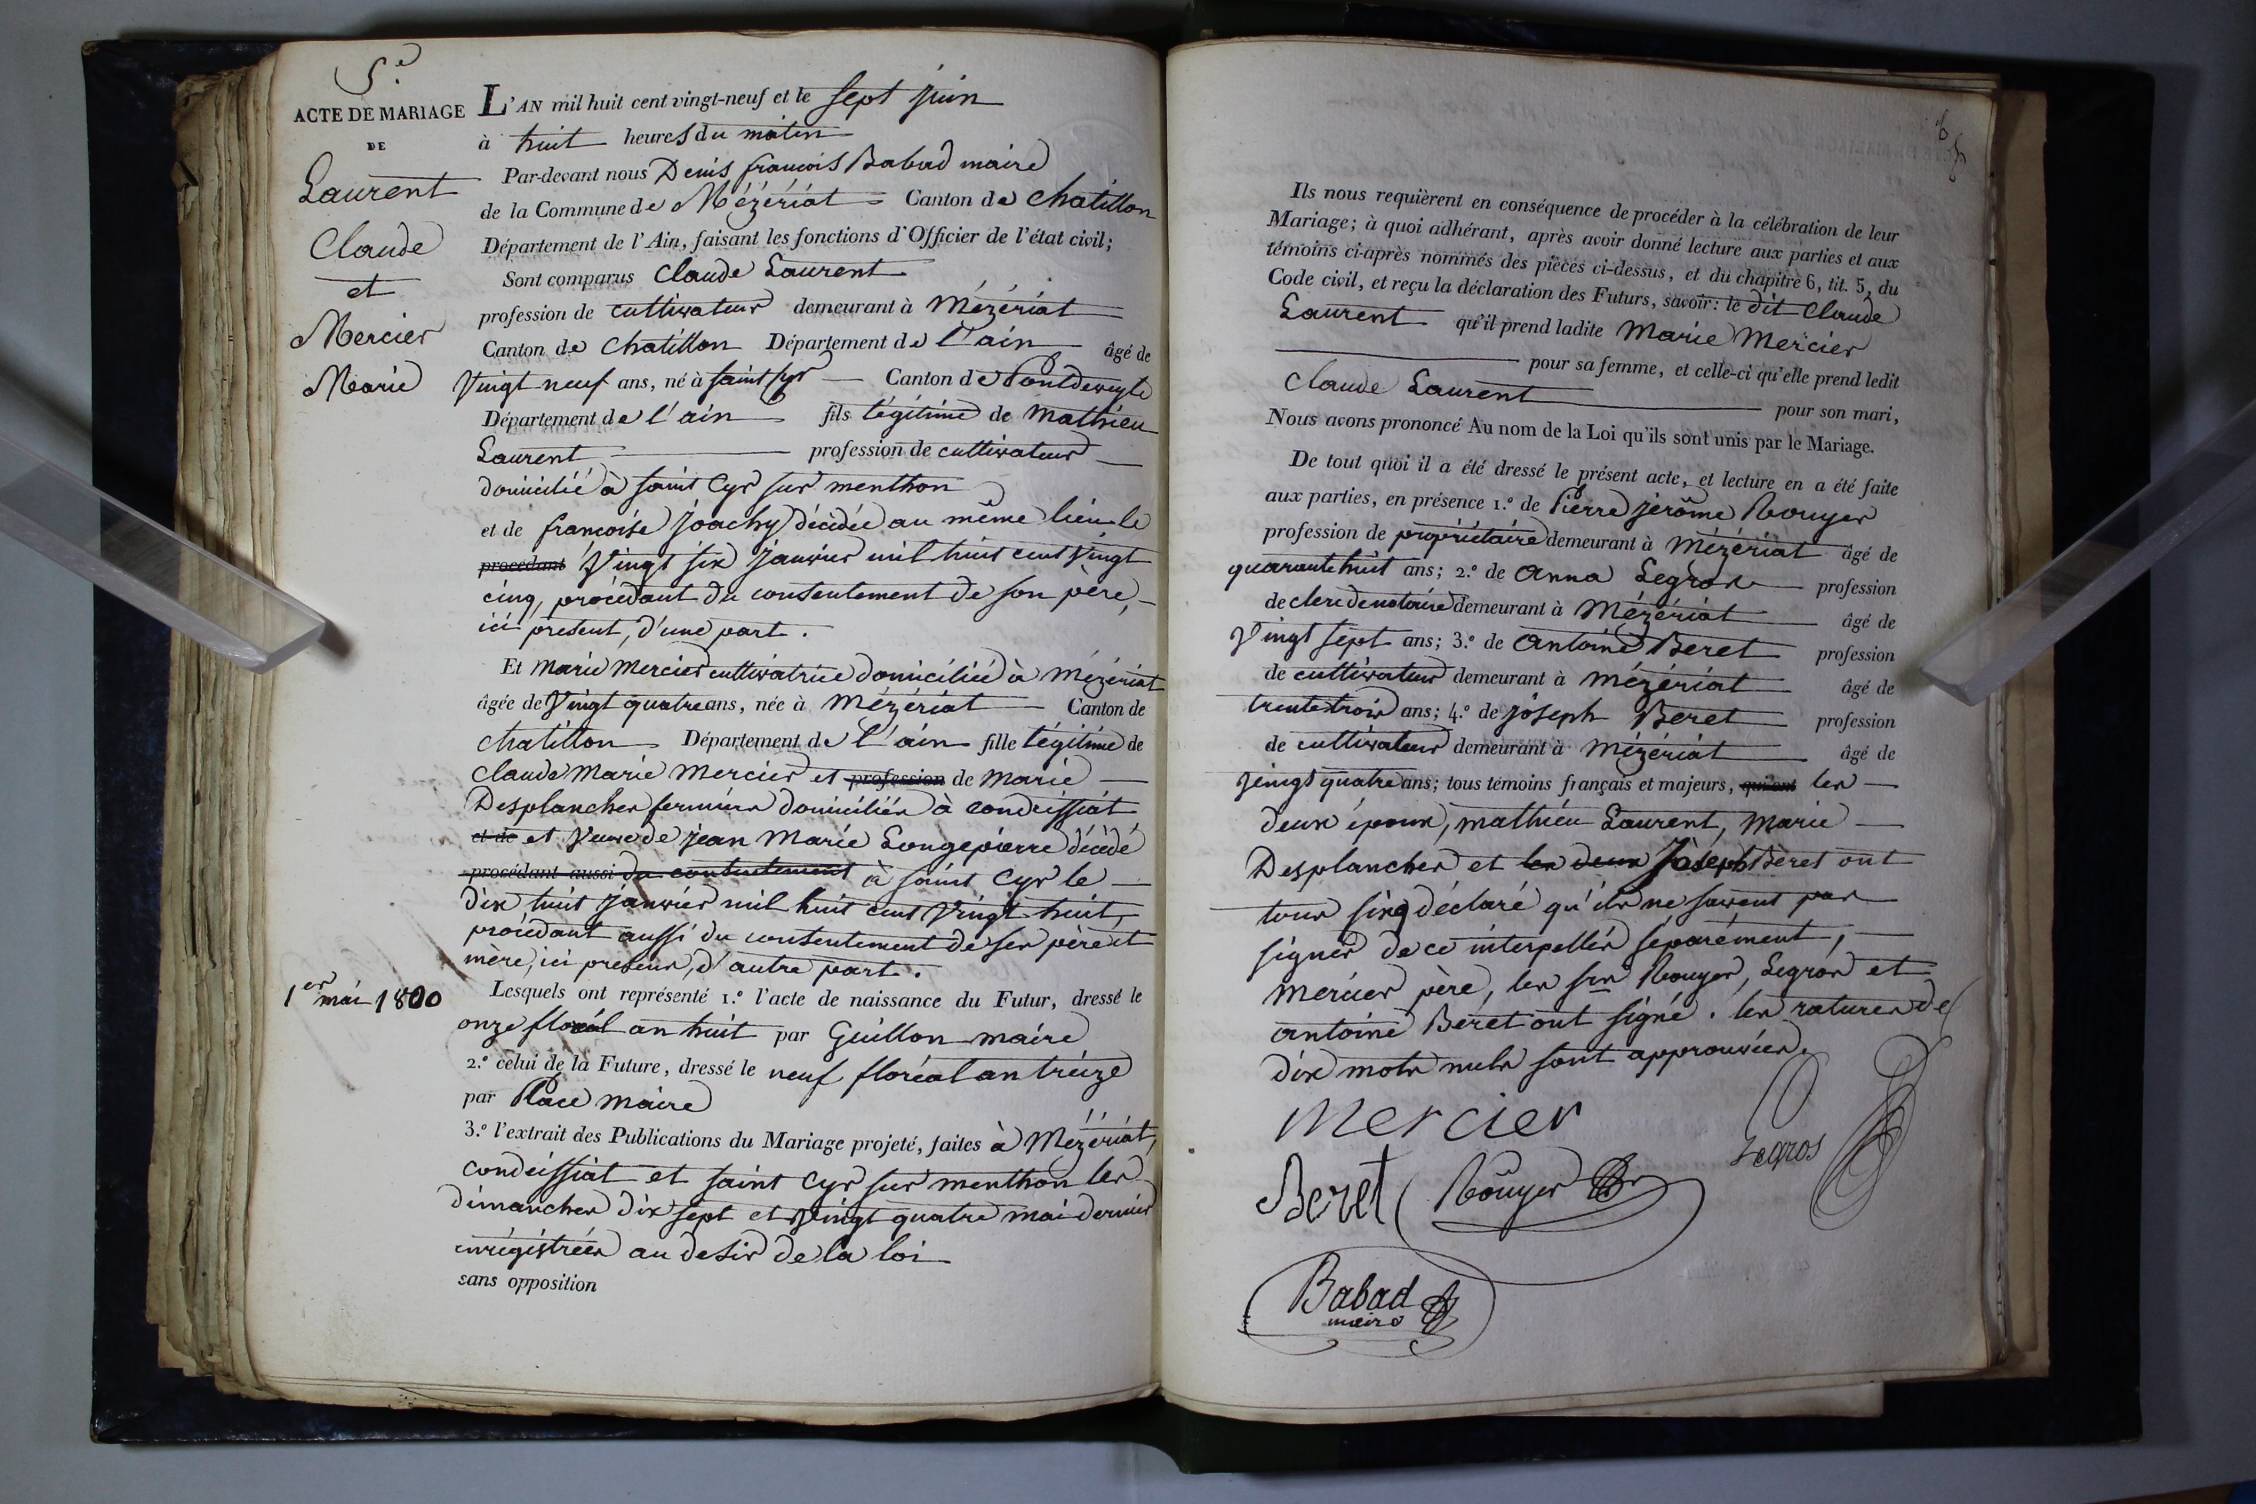 5.e
ACTE DE MARIAGE
DE
Laurent
Claude
et
Mercier
Marie
L'AN mil huit cent vingt-neuf et le sept juin
à huit heures du matin
Par-devant nous Denis françois Babad maire
de la Commune de Mézériat Canton de chatillon
Département de l'Ain, faisant les fonctions d'Officier de l'état civil;
Sont comparus Claude Laurent
profession de cultivateur demeurant à Mézériat
Canton de chatillon Département de l'ain âgé de
vingt neuf ans, né à saint Cyr Canton de Pontdeveyle
Département de l'ain fils légitime de Mathieu
Laurent profession de cultivateur
domicilié à saint Cyr sur menthon
et de françoise Joachy décédée au même lieu le
procédant vingt six janvier mil huit cent vingt
cinq, procédant du consentement de son père,
ici présent, d'une part.
Et Marie Mercier cultivatrice domiciliée à Mézériat
âgée de vingt quatre ans, née à Mézériat Canton de
chatillon Département de l'ain fille légitime de
Claude Marie Mercier et profession de Marie
Desplanches fermiers domiciliés à condeissiat
et de et veuve de jean Marie Longepierre décédé
procédant aussi du contentement à saint Cyr le
dix huit janvier mil huit cent vingt huit,
procédant aussi du consentement de ses père et
mère, ici présens, d'autre part.
1er mai 1800
Lesquels ont représenté 1.º l'acte de naissance du Futur, dressé le
onze floréal an huit par Guillon maire
2.º celui de la Future, dressé le neuf floréal an treize
par Place maire
3.º l'extrait des Publications du Mariage projeté, faites à Mézériat,
condeissiat et saint Cyr sur menthon les
dimanches dix sept et vingt quatre mai dernier
enrégistrées au desir de la loi
sans opposition
Ils nous requièrent en conséquence de procéder à la célébration de leur
Mariage; à quoi adhérant, après avoir donné lecture aux parties et aux
témoins ci-après nommés des pièces ci-dessus, et du chapitre 6, tit. 5, du
Code civil, et reçu la déclaration des Futurs, savoir: le dit Claude
Laurent qu'il prend ladite Marie Mercier
pour sa femme, et celle-ci qu'elle prend ledit
Claude Laurent pour son mari,
Nous avons prononcé Au nom de la Loi qu'ils sont unis par le Mariage.
De tout quoi il a été dressé le présent acte, et lecture en a été faite
aux parties, en présence 1.º de Pierre jérôme Rouyer
profession de propriétaire demeurant à Mézériat âgé de
quarante huit ans; 2.º de Anna Legros profession
de clerc de notaire demeurant à Mézériat âgé de
vingt sept ans; 3.º de Antoine Beret profession
de cultivateur demeurant à Mézériat âgé de
trente trois ans; 4.º de joseph Beret profession
de cultivateur demeurant à Mézériat âgé de
vingt quatre ans; tous témoins français et majeurs, qui ont les
deux époux, mathieu Laurent, Marie
Desplanches et les deux Joseph Beret ont
tous cinq déclaré qu'ils ne savent pas
signer de ce interpellés séparément,
Mercier père, les srs Rouyer, Legros et
antoine Beret ont signé. les ratures de
dix mots nuls sont approuvées.
Mercier
Legros
Beret
Rouyer
Babad
maire